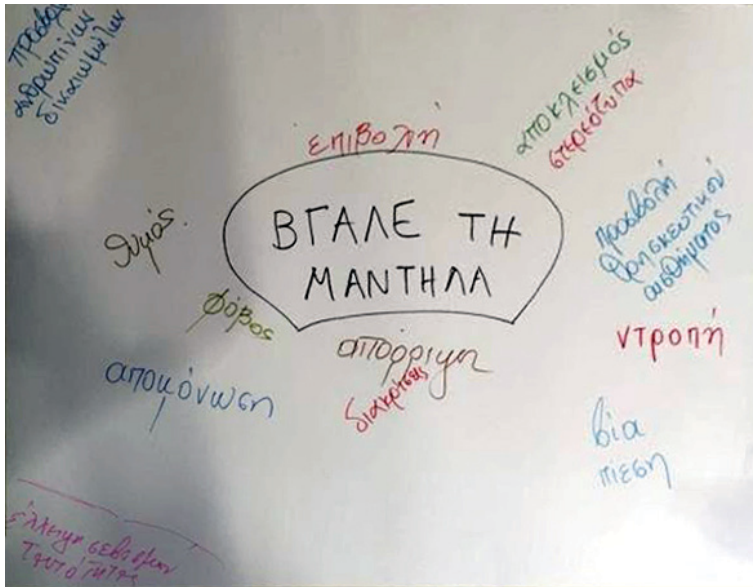 προσβολή
ανθρωπίνων
δικαιωμάτων
αποκλεισμός
στερεότυπα
επιβολή
ΒΓΑΛΕ ΤΗ
ΜΑΝΤΗΛΑ
θυμός.
προσβολή
θρησκευτικού
αισθήματος
φόβος
ντροπή
απόρριψη
διακρίσεις
απομόνωση
βία
πίεση
έλλειψη σεβασμού
ταυτότητας